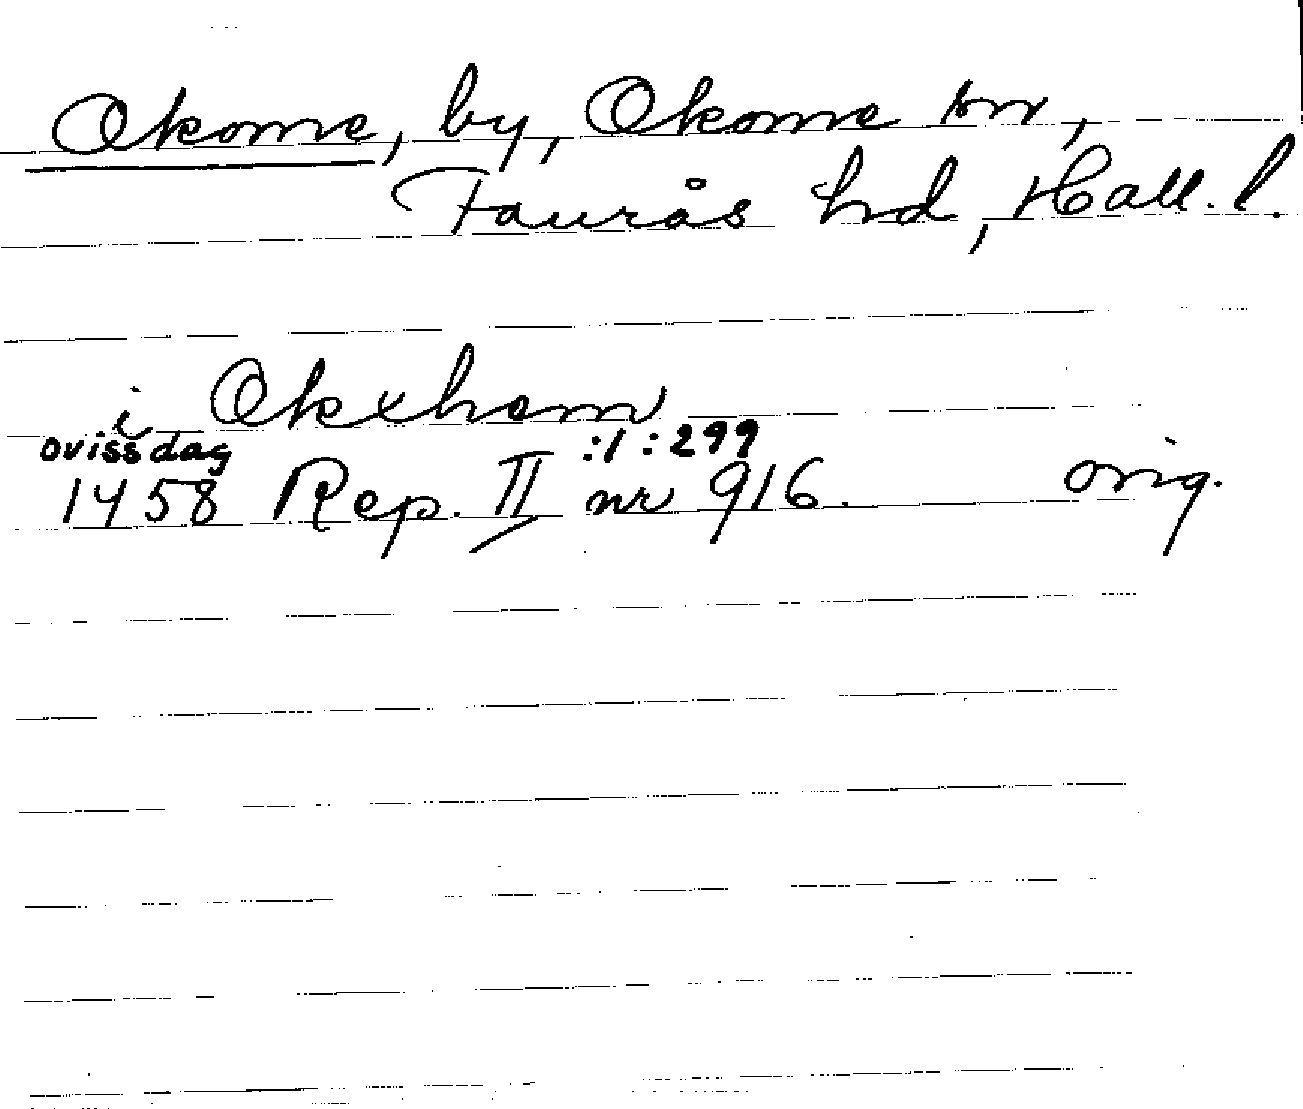 Okome, by, Okome sn,
Faurås hd, Hall. l.
i Okxhem
oviss dag :1:299
1458 Rep. II nr 916. orig.